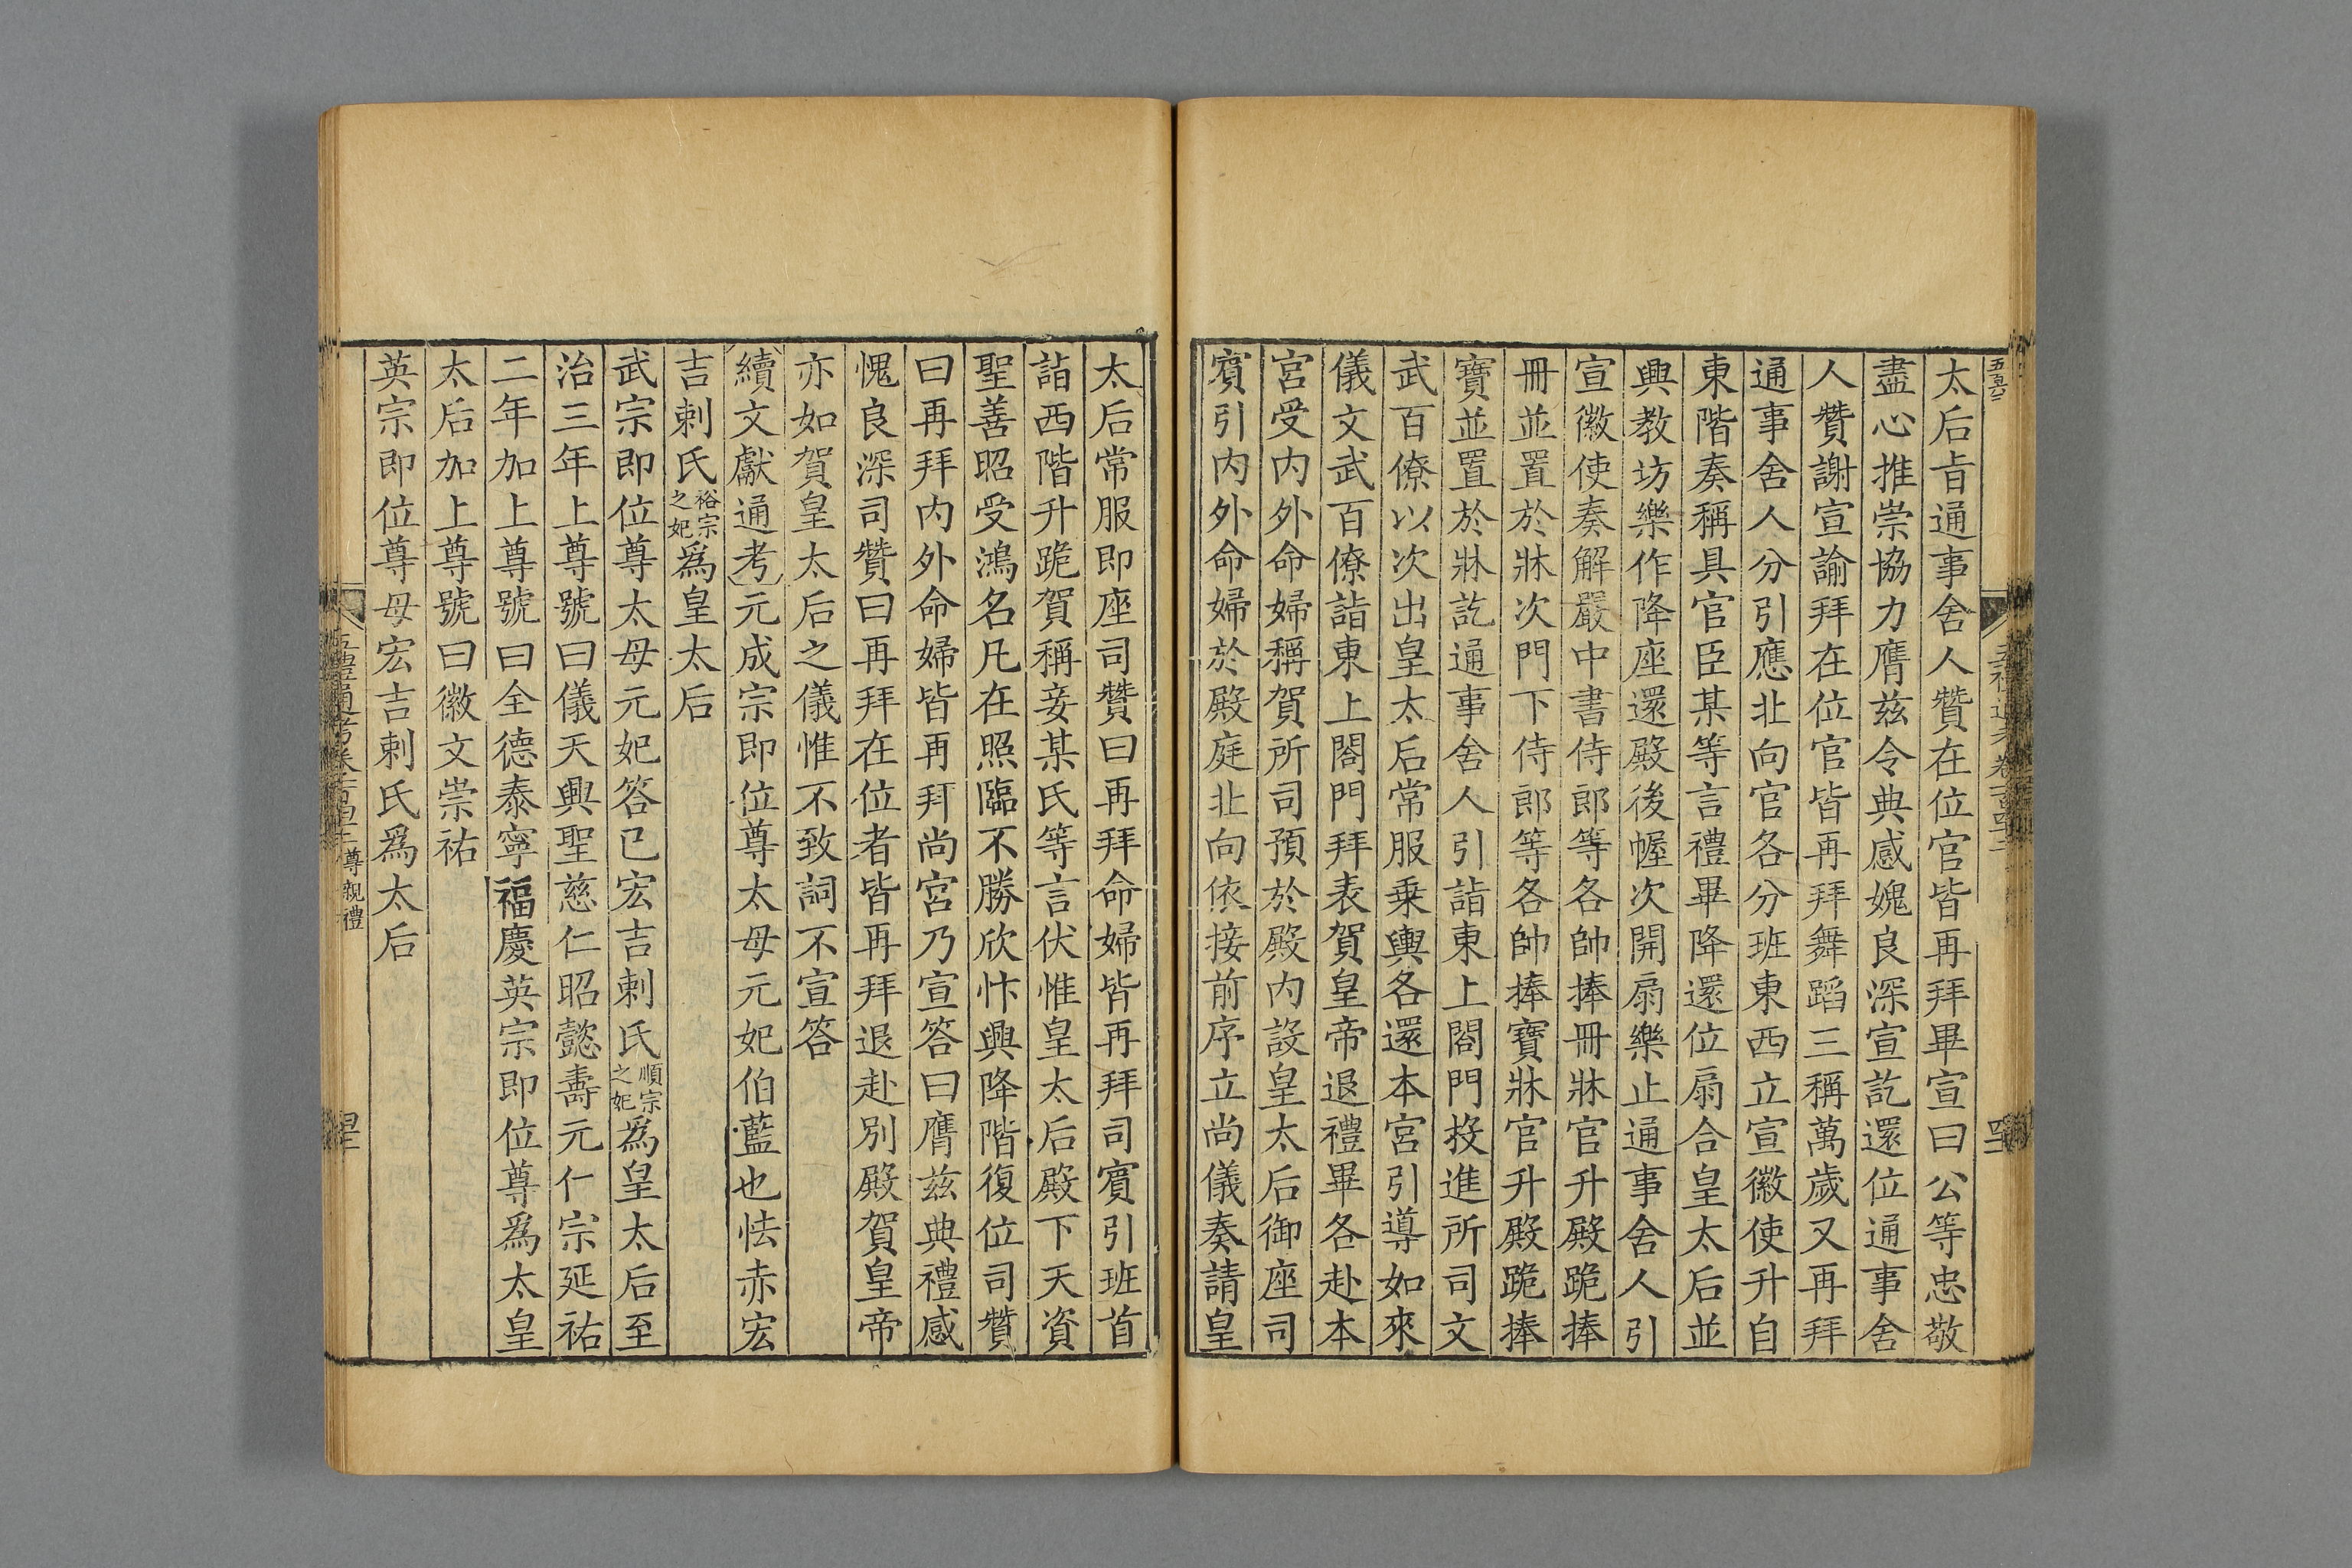 太后㫖通事舍人贊在位官皆再拜畢宣曰公等忠敬
盡心推崇協力膺兹令典感媿良深宣訖還位通事舍
人贊謝宣諭拜在位官皆再拜舞蹈三稱萬歲又再拜
通事舍人分引應北向官各分班東西立宣徽使升自
東階奏稱具官臣某等言禮畢降還位扇合皇太后並
興教坊樂作降座還殿後幄次開扇樂止通事舍人引
宣徽使奏解嚴中書侍郎等各帥捧冊牀官升殿跪捧
冊並置於牀次門下侍郎等各帥捧寶牀官升殿跪捧
寶並置於牀訖通事舍人引詣東上閤門投進所司文
武百僚以次出皇太后常服乗輿各還本宮引導如來
儀文武百僚詣東上閤門拜表賀皇帝退禮畢各赴本
宮受内外命婦稱賀所司預於殿内設皇太后御座司
賔引内外命婦於殿庭北向依接前序立尚儀奏請皇
太后常服即座司贊曰再拜命婦皆再拜司賔引班首
詣西階升跪賀稱妾某氏等言伏惟皇太后殿下天資
聖善昭受鴻名凡在照臨不勝欣忭興降階復位司贊
曰再拜内外命婦皆再拜尚宮乃宣答曰膺兹典禮感
愧良深司贊曰再拜在位者皆再拜退赴別殿賀皇帝
亦如賀皇太后之儀惟不致詞不宣答
續文獻通考元成宗即位尊太母元妃伯藍也怯赤宏
吉剌氏裕宗之妃爲皇太后
武宗即位尊太母元妃答已宏吉剌氏順宗之妃爲皇太后至
治三年上尊號曰儀天興聖慈仁昭懿壽元仁宗延祐
二年加上尊號曰全德泰寧福慶英宗即位尊爲太皇
太后加上尊號曰徽文崇祐
英宗即位尊母宏吉剌氏爲太后
尊親禮